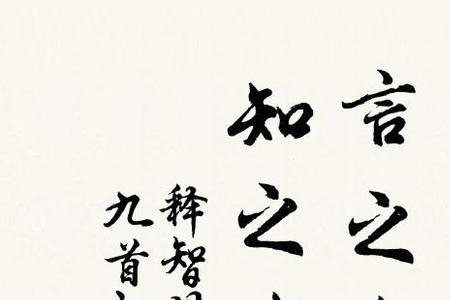 言之
知之
释智
九首